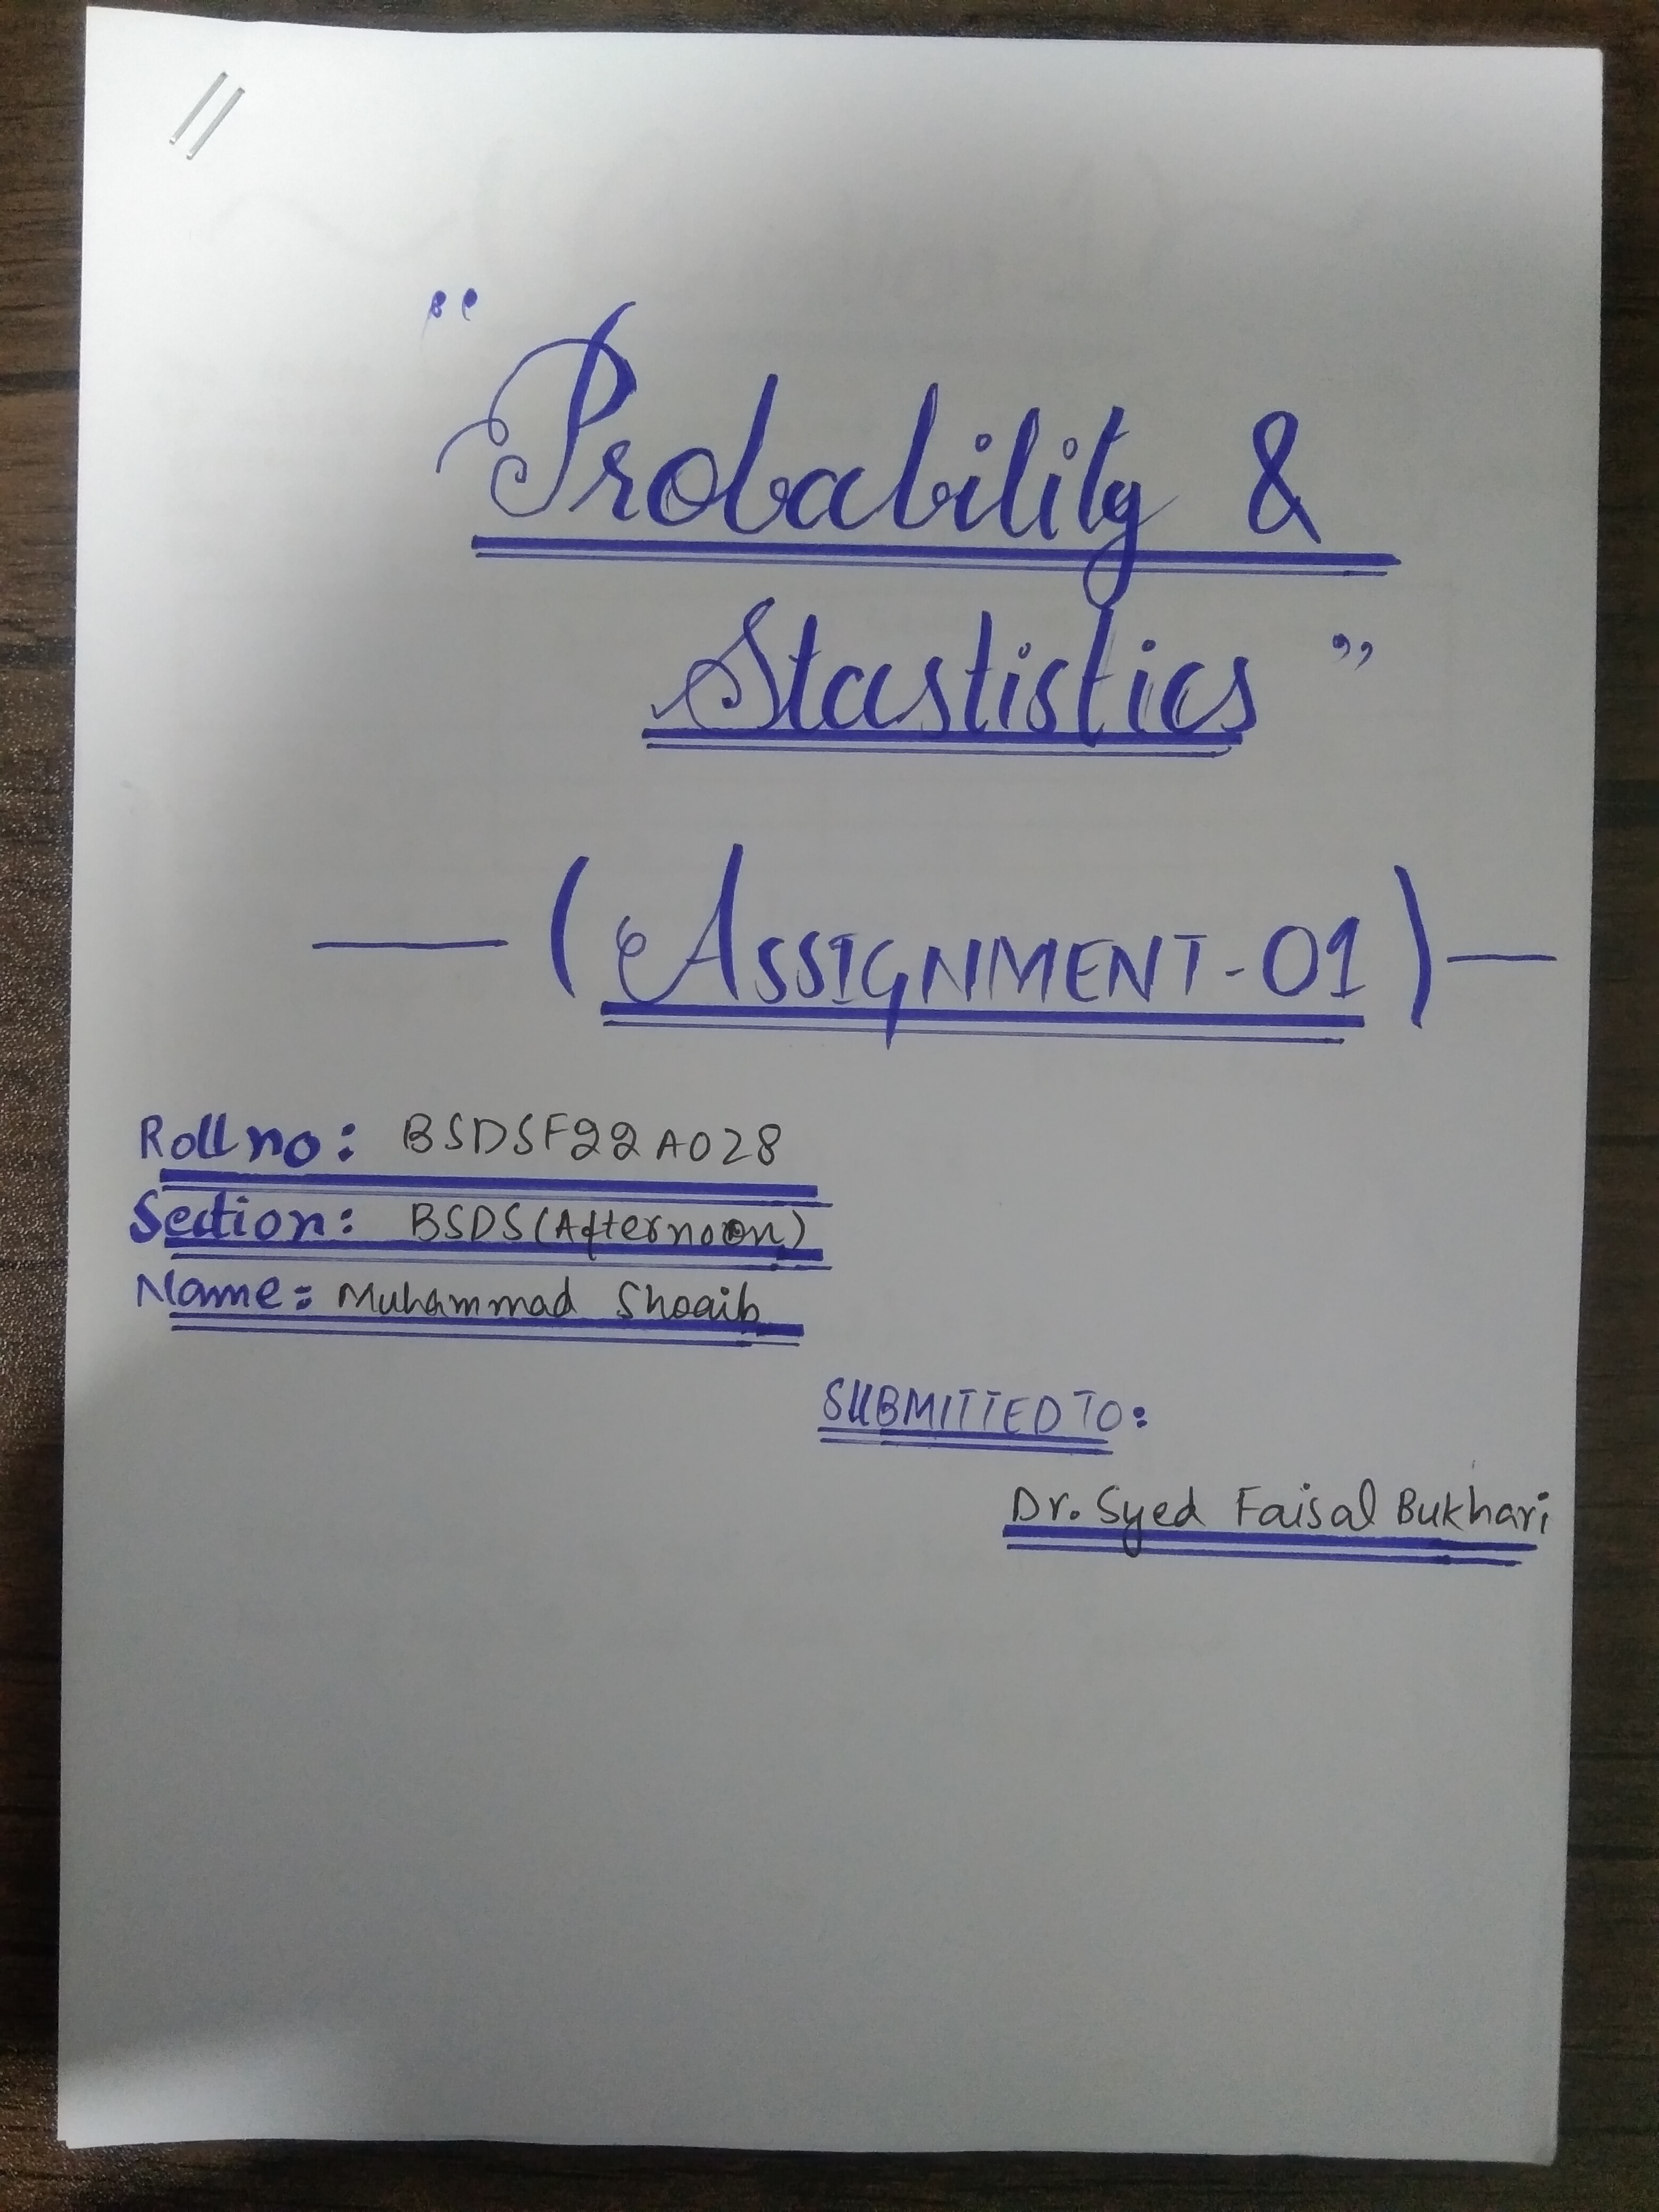 "Probability &
Stastistics"
— (ASSIGNMENT-01) —
Roll no: BSDSF22A028
Section: BSDS(Afternoon)
Name: Muhammad Shoaib
SUBMITTED TO:
Dr. Syed Faisal Bukhari